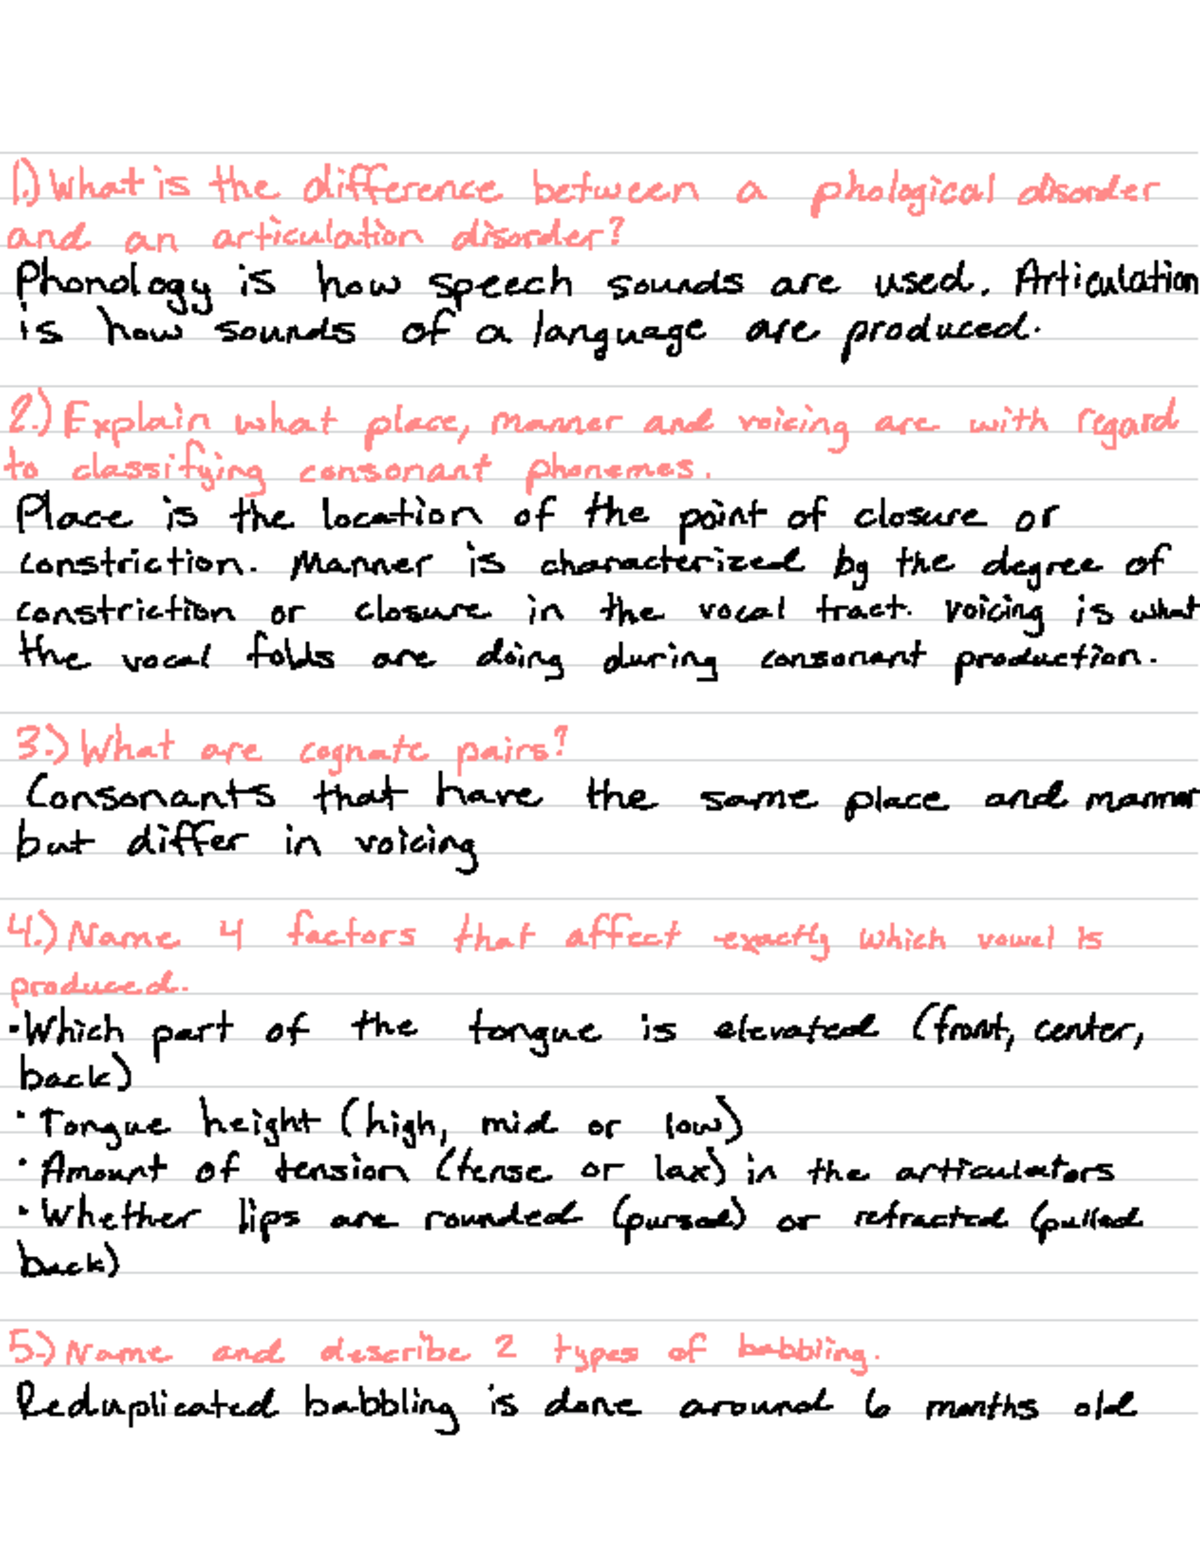 1.) What is the difference between a phological disorder
and an articulation disorder?
Phonology is how speech sounds are used. Articulation
is how sounds of a language are produced.
2.) Explain what place, manner and voicing are with regard
to classifying consonant phonemes.
Place is the location of the point of closure or
constriction. Manner is characterized by the degree of
constriction or closure in the vocal tract. Voicing is what
the vocal folds are doing during consonant production.
3.) What are cognate pairs?
Consonants that have the same place and manner
but differ in voicing
4.) Name 4 factors that affect exactly which vowel is
produced.
• Which part of the tongue is elevated (front, center,
back)
• Tongue height (high, mid or low)
• Amount of tension (tense or lax) in the articulators
• Whether lips are rounded (pursed) or refracted (pulled
back)
5.) Name and describe 2 types of babbling.
Reduplicated babbling is done around 6 months old